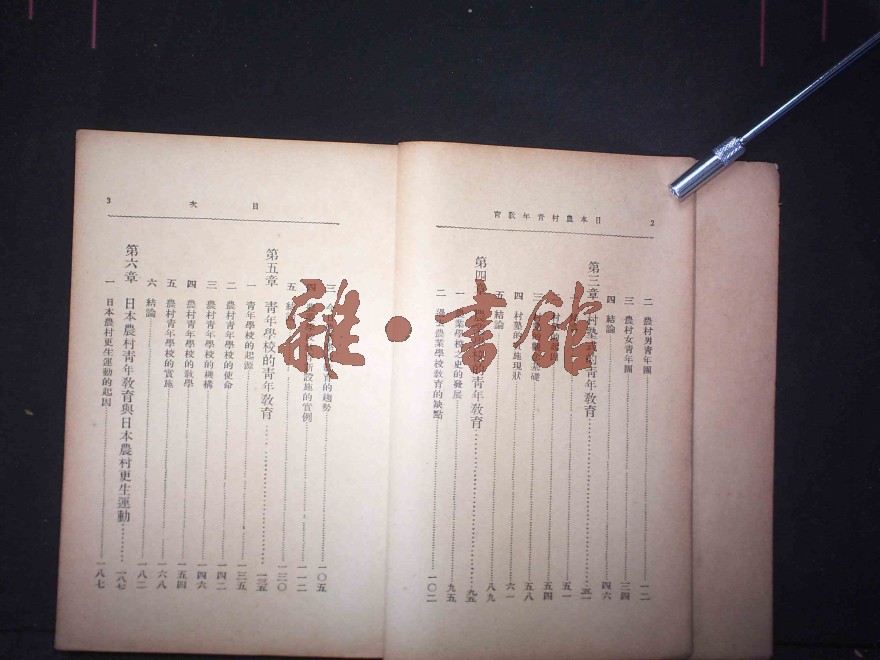 日本農村青年敎育 2
二 農村男青年團 一二
三 農村女青年團 三四
四 結論 四六
第三章 村塾式的青年敎育 五一
五一
五四
四 村塾的實施現狀 五八
五 結論 六一
第四 的青年敎育 九五
業學校之史的發展 九五
二 農業學校敎育的缺點 一〇二
目次 3
三 育的趨勢 一〇五
四 新設施的實例 一一二
五 結 一三〇
第五章 青年學校的青年敎育 一三五
一 青年學校的起源 一三五
二 農村青年學校的使命 一四二
三 農村青年學校的機構 一四六
四 農村青年學校的敎學 一五四
五 農村青年學校的實施 一六八
六 結論 一八二
第六章 日本農村青年敎育與日本農村更生運動 一八七
一 日本農村更生運動的起因 一八七
雜・書館